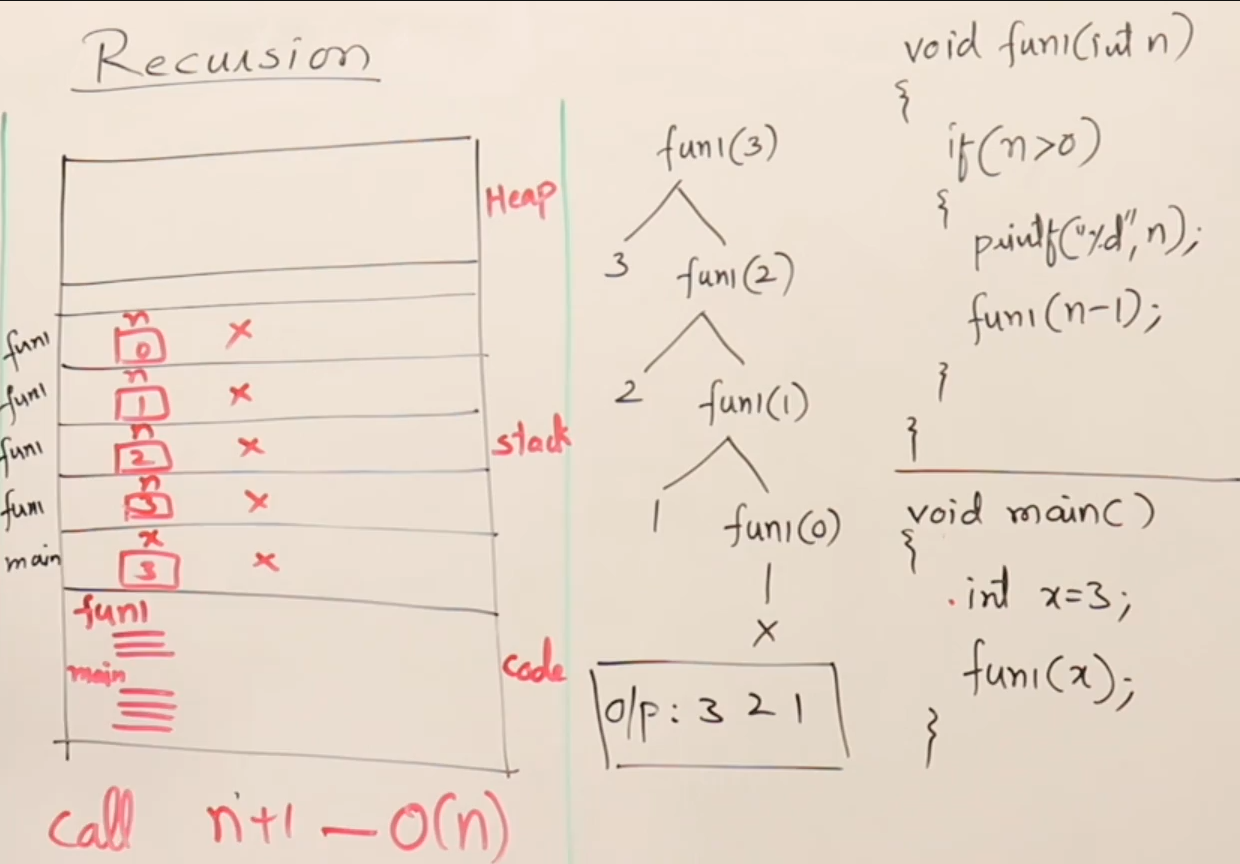 Recursion
Heap
fun1 n 0 ×
fun1 n 1 ×
fun1 n 2 ×
stack
fun1 n 3 ×
main x 3 ×
fun1
main
code
call n+1 — O(n)
fun1(3)
3 fun1(2)
2 fun1(1)
1 fun1(0)
×
o/p : 3 2 1
void fun1(int n)
{
if(n>0)
{
printf("%d", n);
fun1(n-1);
}
}
void main()
{
int x=3;
fun1(x);
}